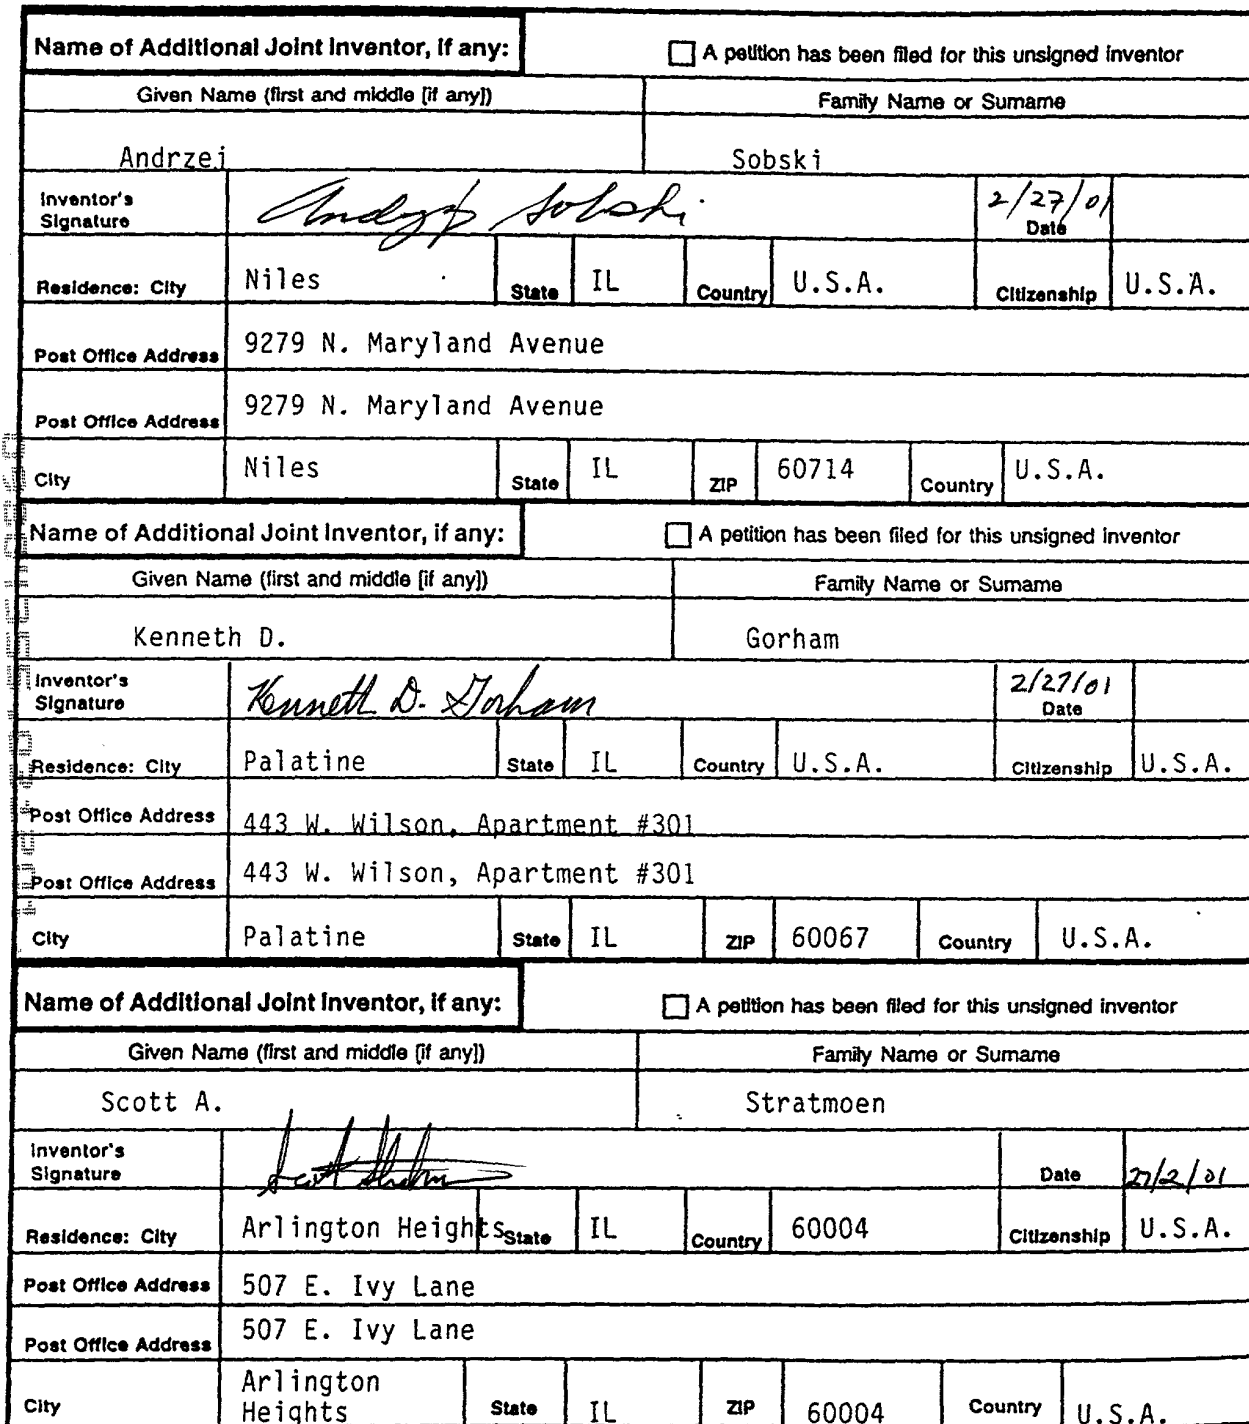 Name of Additional Joint Inventor, if any: A petition has been filed for this unsigned inventor
Given Name (first and middle [if any]) Family Name or Surname
Andrzej Sobski
Inventor's Signature Andrzej Sobski 2/27/01 Date
Residence: City Niles State IL Country U.S.A. Citizenship U.S.A.
Post Office Address 9279 N. Maryland Avenue
Post Office Address 9279 N. Maryland Avenue
City Niles State IL ZIP 60714 Country U.S.A.
Name of Additional Joint Inventor, if any: A petition has been filed for this unsigned inventor
Given Name (first and middle [if any]) Family Name or Surname
Kenneth D. Gorham
Inventor's Signature Kenneth D. Gorham 2/27/01 Date
Residence: City Palatine State IL Country U.S.A. Citizenship U.S.A.
Post Office Address 443 W. Wilson, Apartment #301
Post Office Address 443 W. Wilson, Apartment #301
City Palatine State IL ZIP 60067 Country U.S.A.
Name of Additional Joint Inventor, if any: A petition has been filed for this unsigned inventor
Given Name (first and middle [if any]) Family Name or Surname
Scott A. Stratmoen
Inventor's Signature Date 27/2/01
Residence: City Arlington Heights State IL Country 60004 Citizenship U.S.A.
Post Office Address 507 E. Ivy Lane
Post Office Address 507 E. Ivy Lane
City Arlington Heights State IL ZIP 60004 Country U.S.A.